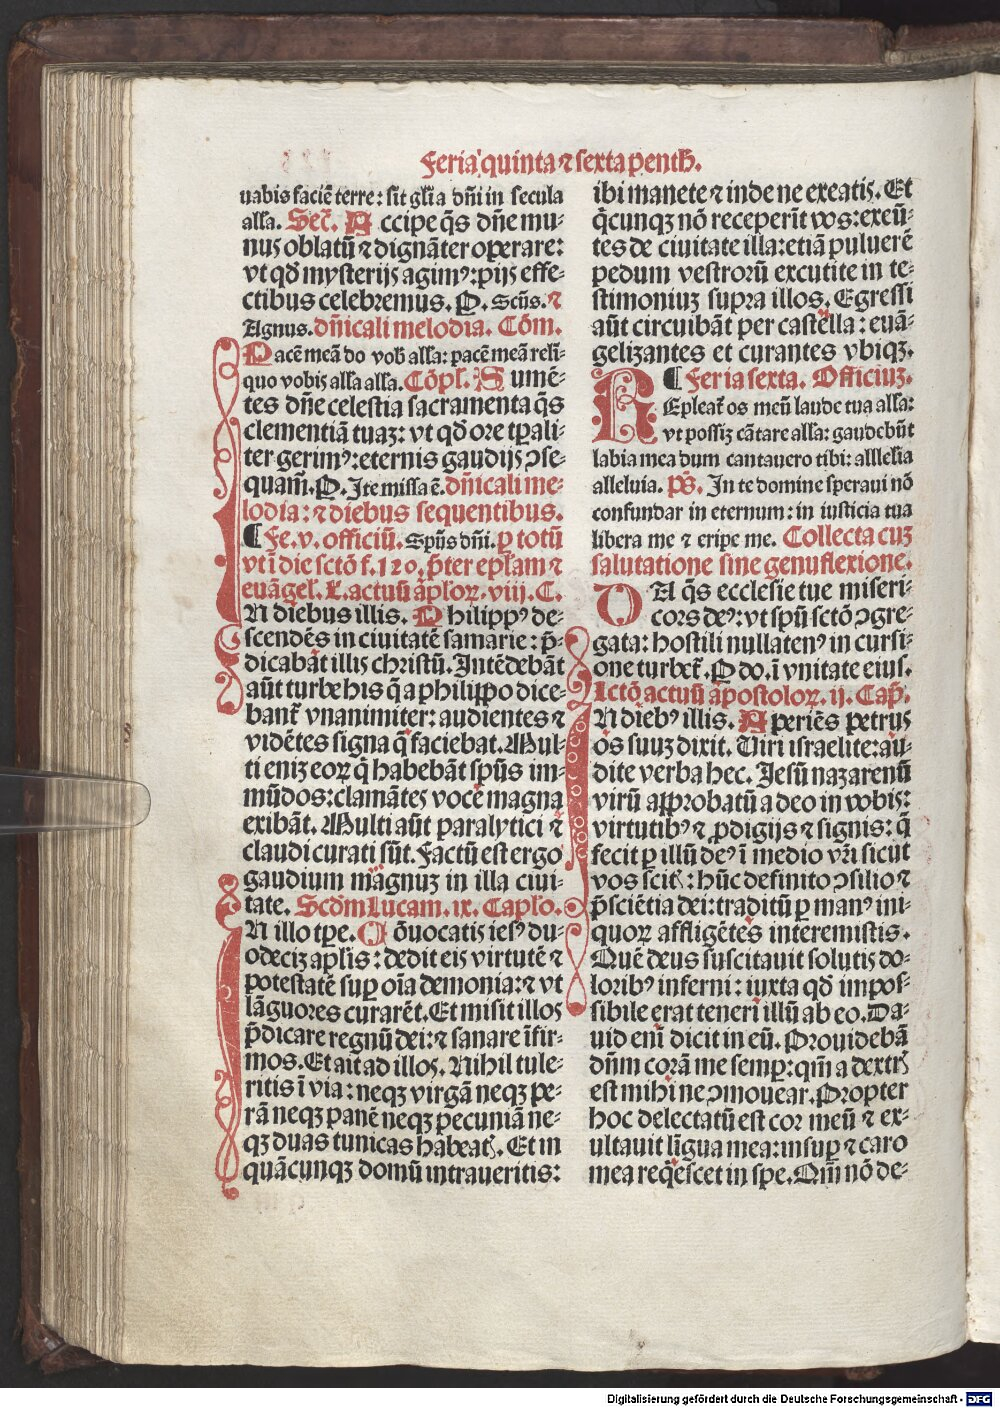 Feria quinta ⁊ sexta penth̃.
uabis faciẽ terre: sit glĩa dñi in secula
alla. Secr̃. Accipe q̃s dñe mu-
nus oblatũ ⁊ dignãter operare:
vt qd̃ mysterijs agimꝰ: pijs effe-
ctibus celebremus. P. Scũs. ⁊
Agnus. dñicali melodia. Cõm.
Pacẽ meã do vob̃ alla: pacẽ meã reli-
quo vobis alla alla. Cõpl. Sumẽ-
tes dñe celestia sacramenta q̃s
clementiã tuaz: vt qd̃ ore tp̃ali-
ter gerimꝰ: eternis gaudijs ꝯse-
quam̃. P. Ite missa ẽ. dñicali me-
lodia: ⁊ diebus sequentibus.
¶ Fe. v. officiũ. Spũs dñi. ꝑ totũ
vt ĩ die sctõ f. 120. p̃ter ep̃lam ⁊
euãgel̃. L̃. actuũ ap̃loꝝ. viij. C.
IN diebus illis. Philippꝰ de-
scendẽs in ciuitatẽ samarie: p̃-
dicabãt illis christũ. Intẽdebãt
aũt turbe his q̃ a philippo dice-
bant̃ vnanimiter: audientes ⁊
vidẽtes signa q̃ faciebat. Mul-
ti eniz eoꝝ q̃ habebãt spũs im-
mũdos: clamãtes voce magna
exibãt. Multi aũt paralytici ⁊
claudi curati sũt. Factũ est ergo
gaudium magnuz in illa ciui-
tate. Scd̃m Lucam. ix. Capl̃o.
IN illo tp̃e. Cõuocatis iesꝰ du-
odeciz ap̃lis: dedit eis virtutẽ ⁊
potestatẽ suꝑ oĩa demonia: ⁊ vt
lãguores curarẽt. Et misit illos
p̃dicare regnũ dei: ⁊ sanare ĩfir-
mos. Et ait ad illos. Nihil tule-
ritis ĩ via: neqꝫ virgã neqꝫ pe-
rã neqꝫ panẽ neqꝫ pecuniã ne-
qꝫ duas tunicas habeat̃. Et in
quãcunqꝫ domũ intraueritis:
ibi manete ⁊ inde ne exeatis. Et
q̃cunqꝫ nõ receperĩt vos: exeũ-
tes de ciuitate illa: etiã puluerẽ
pedum vestrorũ excutite in te-
stimoniuz supra illos. Egressi
aũt circuibãt per castella: euã-
gelizantes et curantes vbiqꝫ.
¶ Feria sexta. Officiuz.
REpleat̃ os meũ laude tua alla:
vt possiz cãtare alla: gaudebũt
labia mea dum cantauero tibi: alllelia
alleluia. ps̃. In te domine speraui nõ
confundar in eternum: in iusticia tua
libera me ⁊ eripe me. Collecta cuz
salutatione sine genuflexione.
DA q̃s ecclesie tue miseri-
cors deꝰ: vt spũ sctõ ꝯgre-
gata: hostili nullatenꝰ in cursi-
one turbet̃. P do. ĩ vnitate eius.
Lctõ actuũ apostoloꝝ. ij. Cap̃.
IN diebꝰ illis. Aperiẽs petrus
os suuz dixit. Viri israelite: au-
dite verba hec. Jesũ nazarenũ
virũ approbatũ a deo in vobis:
virtutibꝰ ⁊ ꝓdigijs ⁊ signis: q̃
fecit ꝑ illũ deꝰ ĩ medio vr̃i sicut
vos scit̃: hũc definito ꝯsilio ⁊
p̃sciẽtia dei: traditũ ꝑ manꝰ ini-
quoꝝ affligẽtes interemistis.
Quẽ deus suscitauit solutis do-
loribꝰ inferni: iuxta qd̃ impos-
sibile erat teneri illũ ab eo. Da-
uid eni dicit in eũ. Prouidebã
dñm corã me semꝑ: qm̃ a dextr̃
est mihi ne ꝯmouear. Propter
hoc delectatũ est cor meũ ⁊ ex-
ultauit lĩgua mea: insuꝑ ⁊ caro
mea reqͥescet in spe. Qm̃ nõ de-
Digitalisierung gefördert durch die Deutsche Forschungsgemeinschaft - DFG